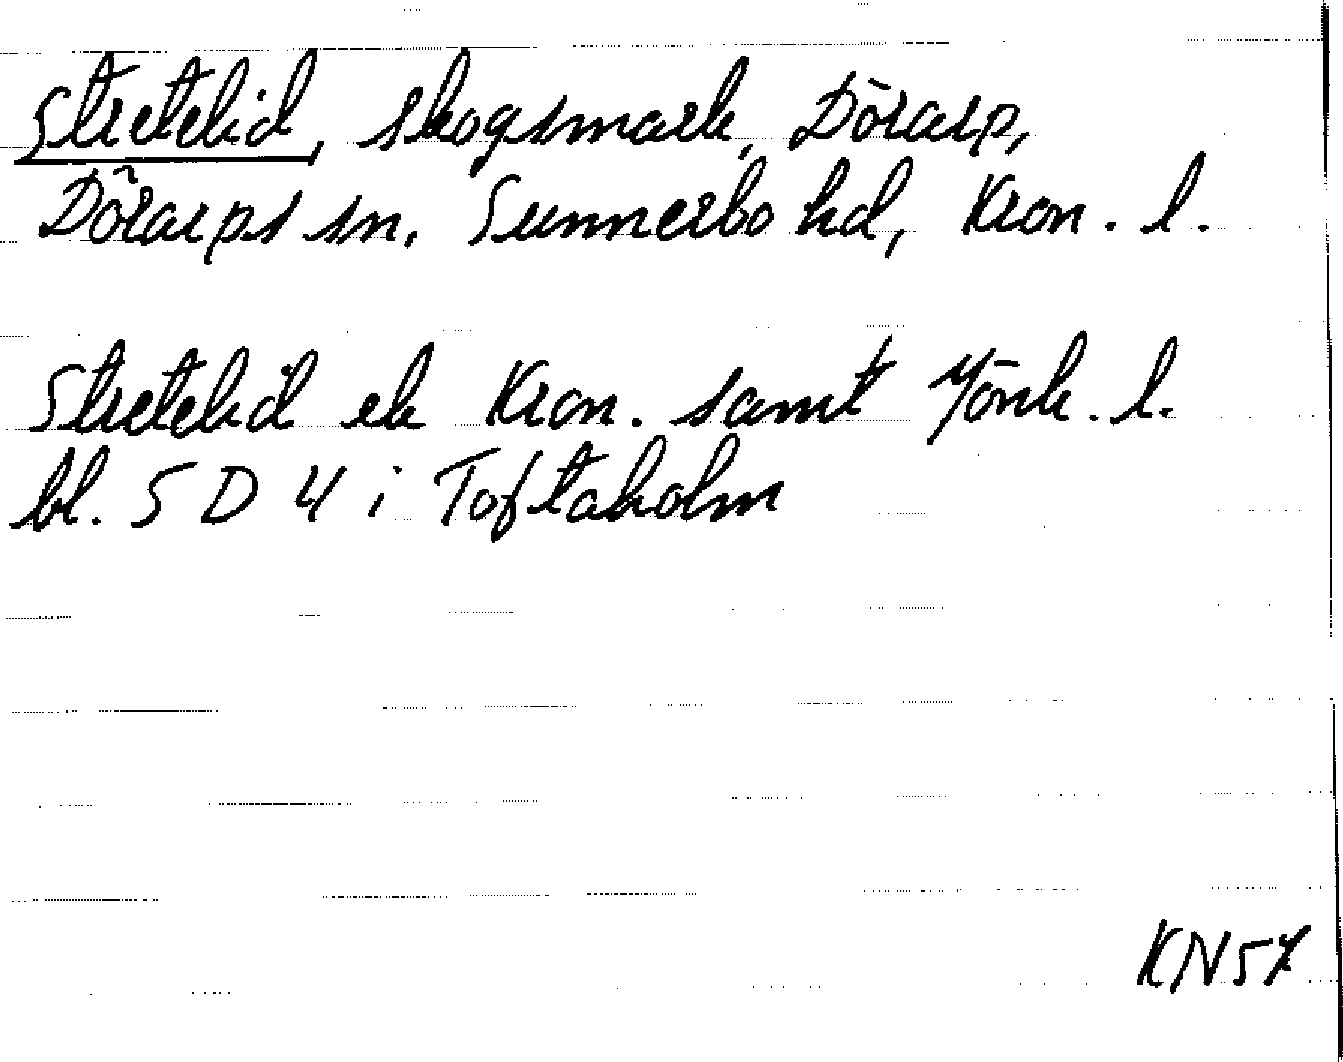 Stretelid, skogsmark, Dörarp,
Dörarps sn, Sunnerbo hd, Kron. l.
Stretelid ek Kron. samt Jönk. l.
bl. 5 D 4 i Toftaholm
KN57